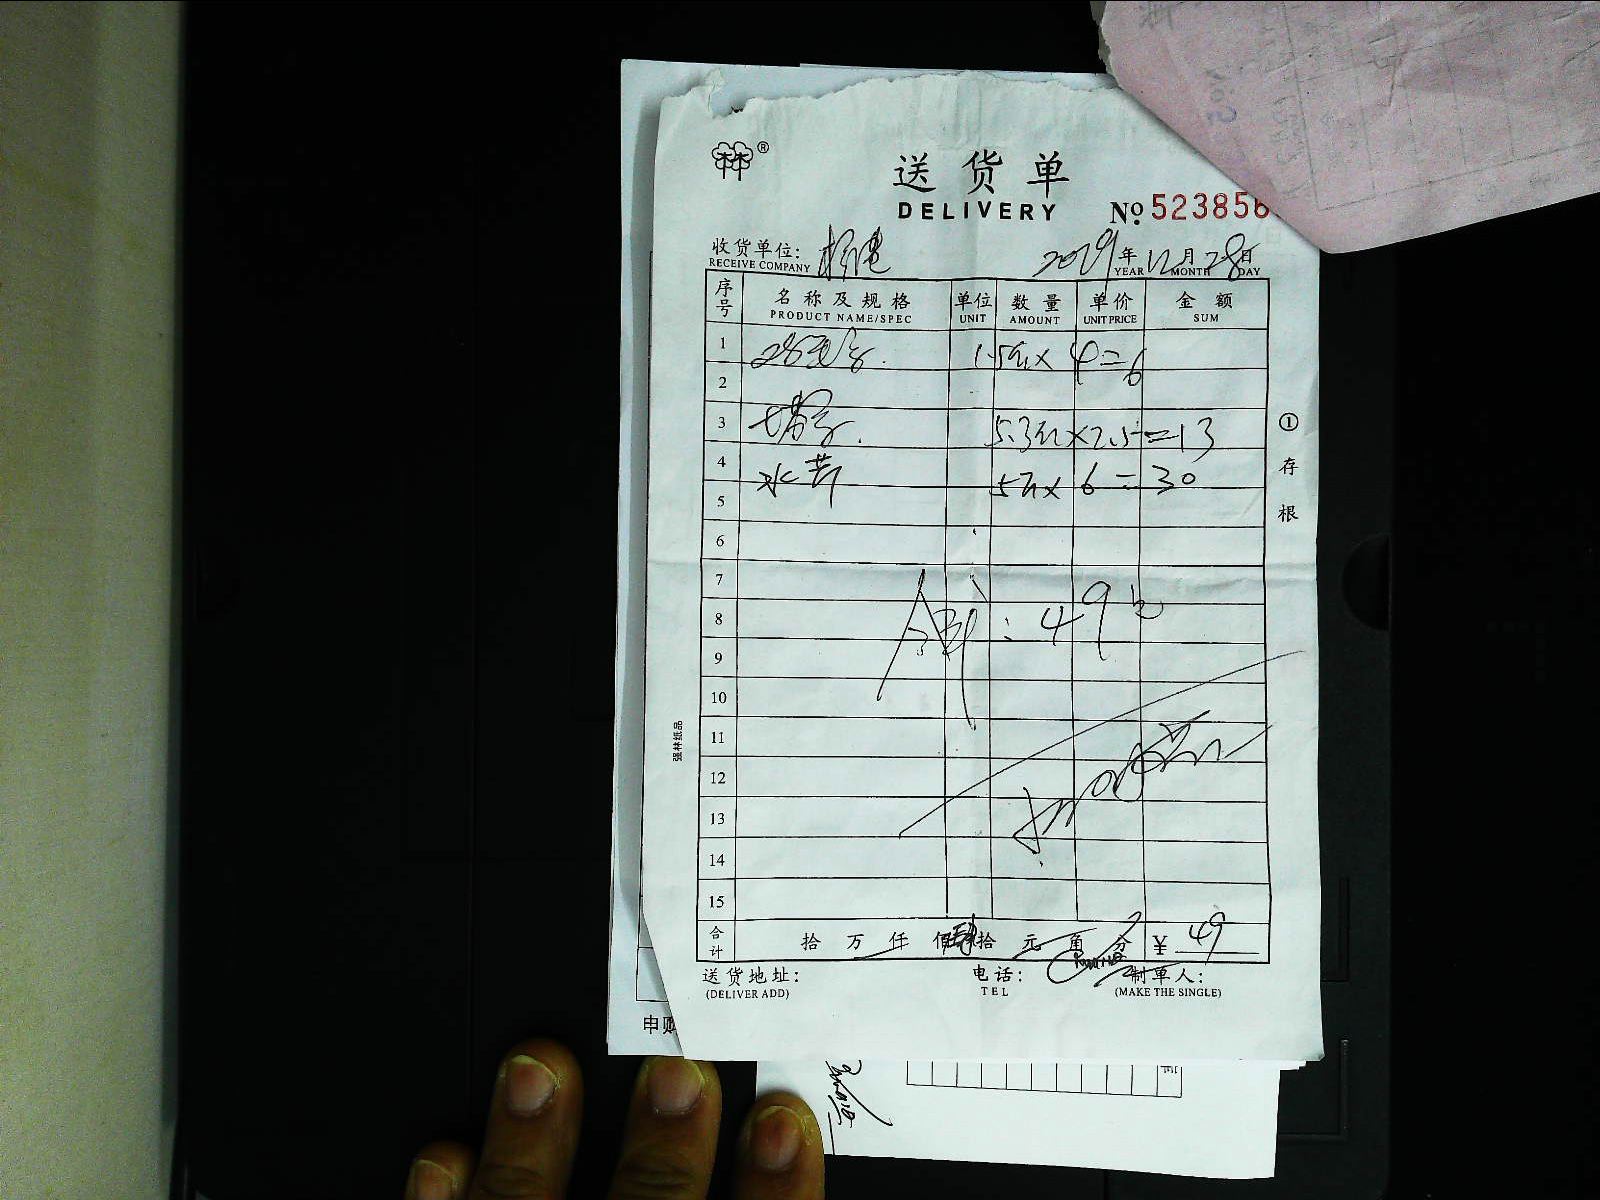 送货单
DELIVERY
№ 523856
收货单位：
RECEIVE COMPANY
2019年12月28日
YEAR MONTH DAY
序号 名称及规格 单位 数量 单价 金额
PRODUCT NAME/SPEC UNIT AMOUNT UNIT PRICE SUM
1 1.5元× 4=6
2
3 5.3元×2.5=13
4 水芹 5元× 6=30
5
6
7
8 合计：49元
9
10
11
12
13
14
15
合计 拾 万 仟 佰 拾 元 角 分 ¥ 49
送货地址： 电话： 制单人：
(DELIVER ADD) TEL (MAKE THE SINGLE)
①存根
强林纸品
申购